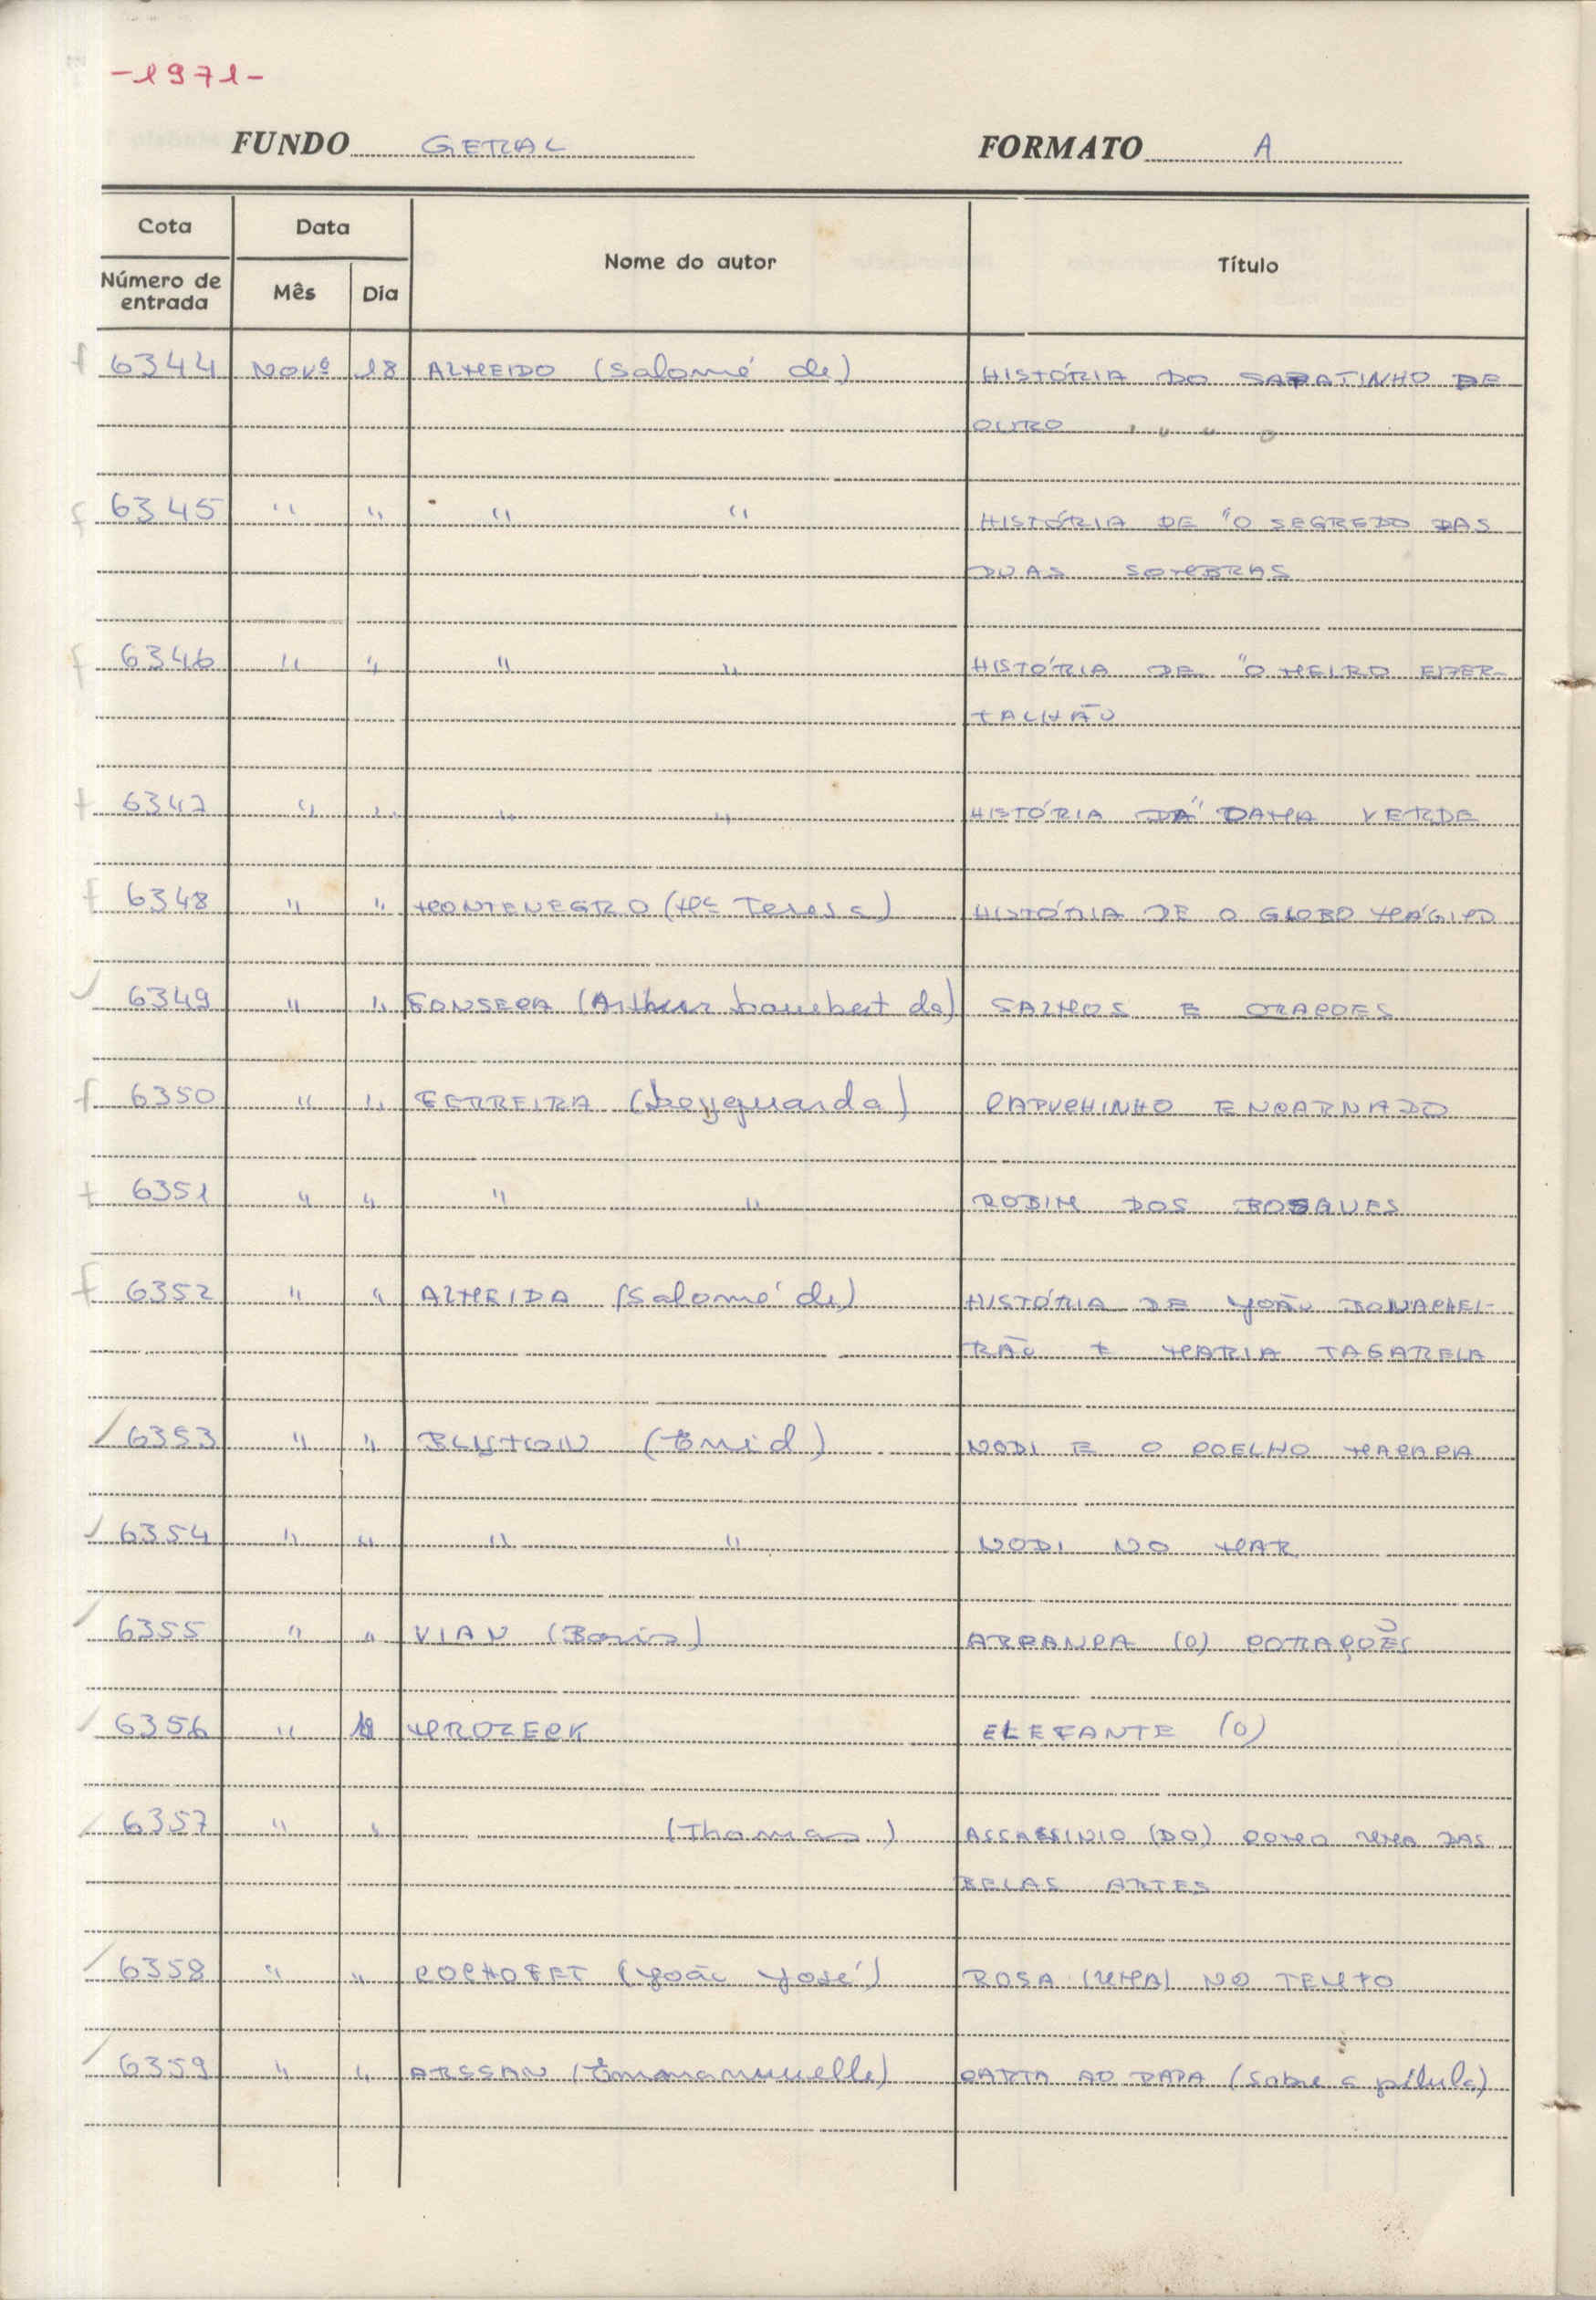 -1971-
FUNDO GERAL FORMATO A
Cota Data Nome do autor Título
Número de entrada Mês Dia
f 6344 NOVº 18 ALMEIDO (Salomé de) HISTÓRIA DO SAPATINHO DE
OURO
f 6345 " " " " HISTÓRIA DE "O SEGREDO DAS
DUAS SOMBRAS
f 6346 " " " " HISTÓRIA DE "O MELRO ESPER-
TALHÃO
f 6347 " " " " HISTÓRIA DA" DAMA VERDE
f 6348 " " MONTENEGRO (Mª Teresa) HISTÓRIA DE O GLOBO MÁGICO
6349 " " FONSECA (Arthur Lambert da) SALMOS E ORACOES
f 6350 " " FERREIRA (Leyguarda) CAPUCHINHO ENCARNADO
f 6351 " " " " ROBIM DOS BOSQUES
f 6352 " " ALMEIDA (Salomé de) HISTÓRIA DE JOÃO BONACHEI-
RÃO E MARIA TAGARELA
6353 " " BLYTON (Enid) NODI E O COELHO MACACA
6354 " " " " NODI NO MAR
6355 " " VIAN (Boris) ARRANCA (O) CORAÇÕES
6356 " 18 MROZECK ELEFANTE (O)
6357 " " (Thomas) ASSASSINIO (DO) COMO UMA DAS
BELAS ARTES
6358 " " COCHOFET (João José) ROSA (UMA) NO TEMPO
6359 " " ARSSAN (Emmanuuelle) CARTA AO PAPA (sobre a pílula)